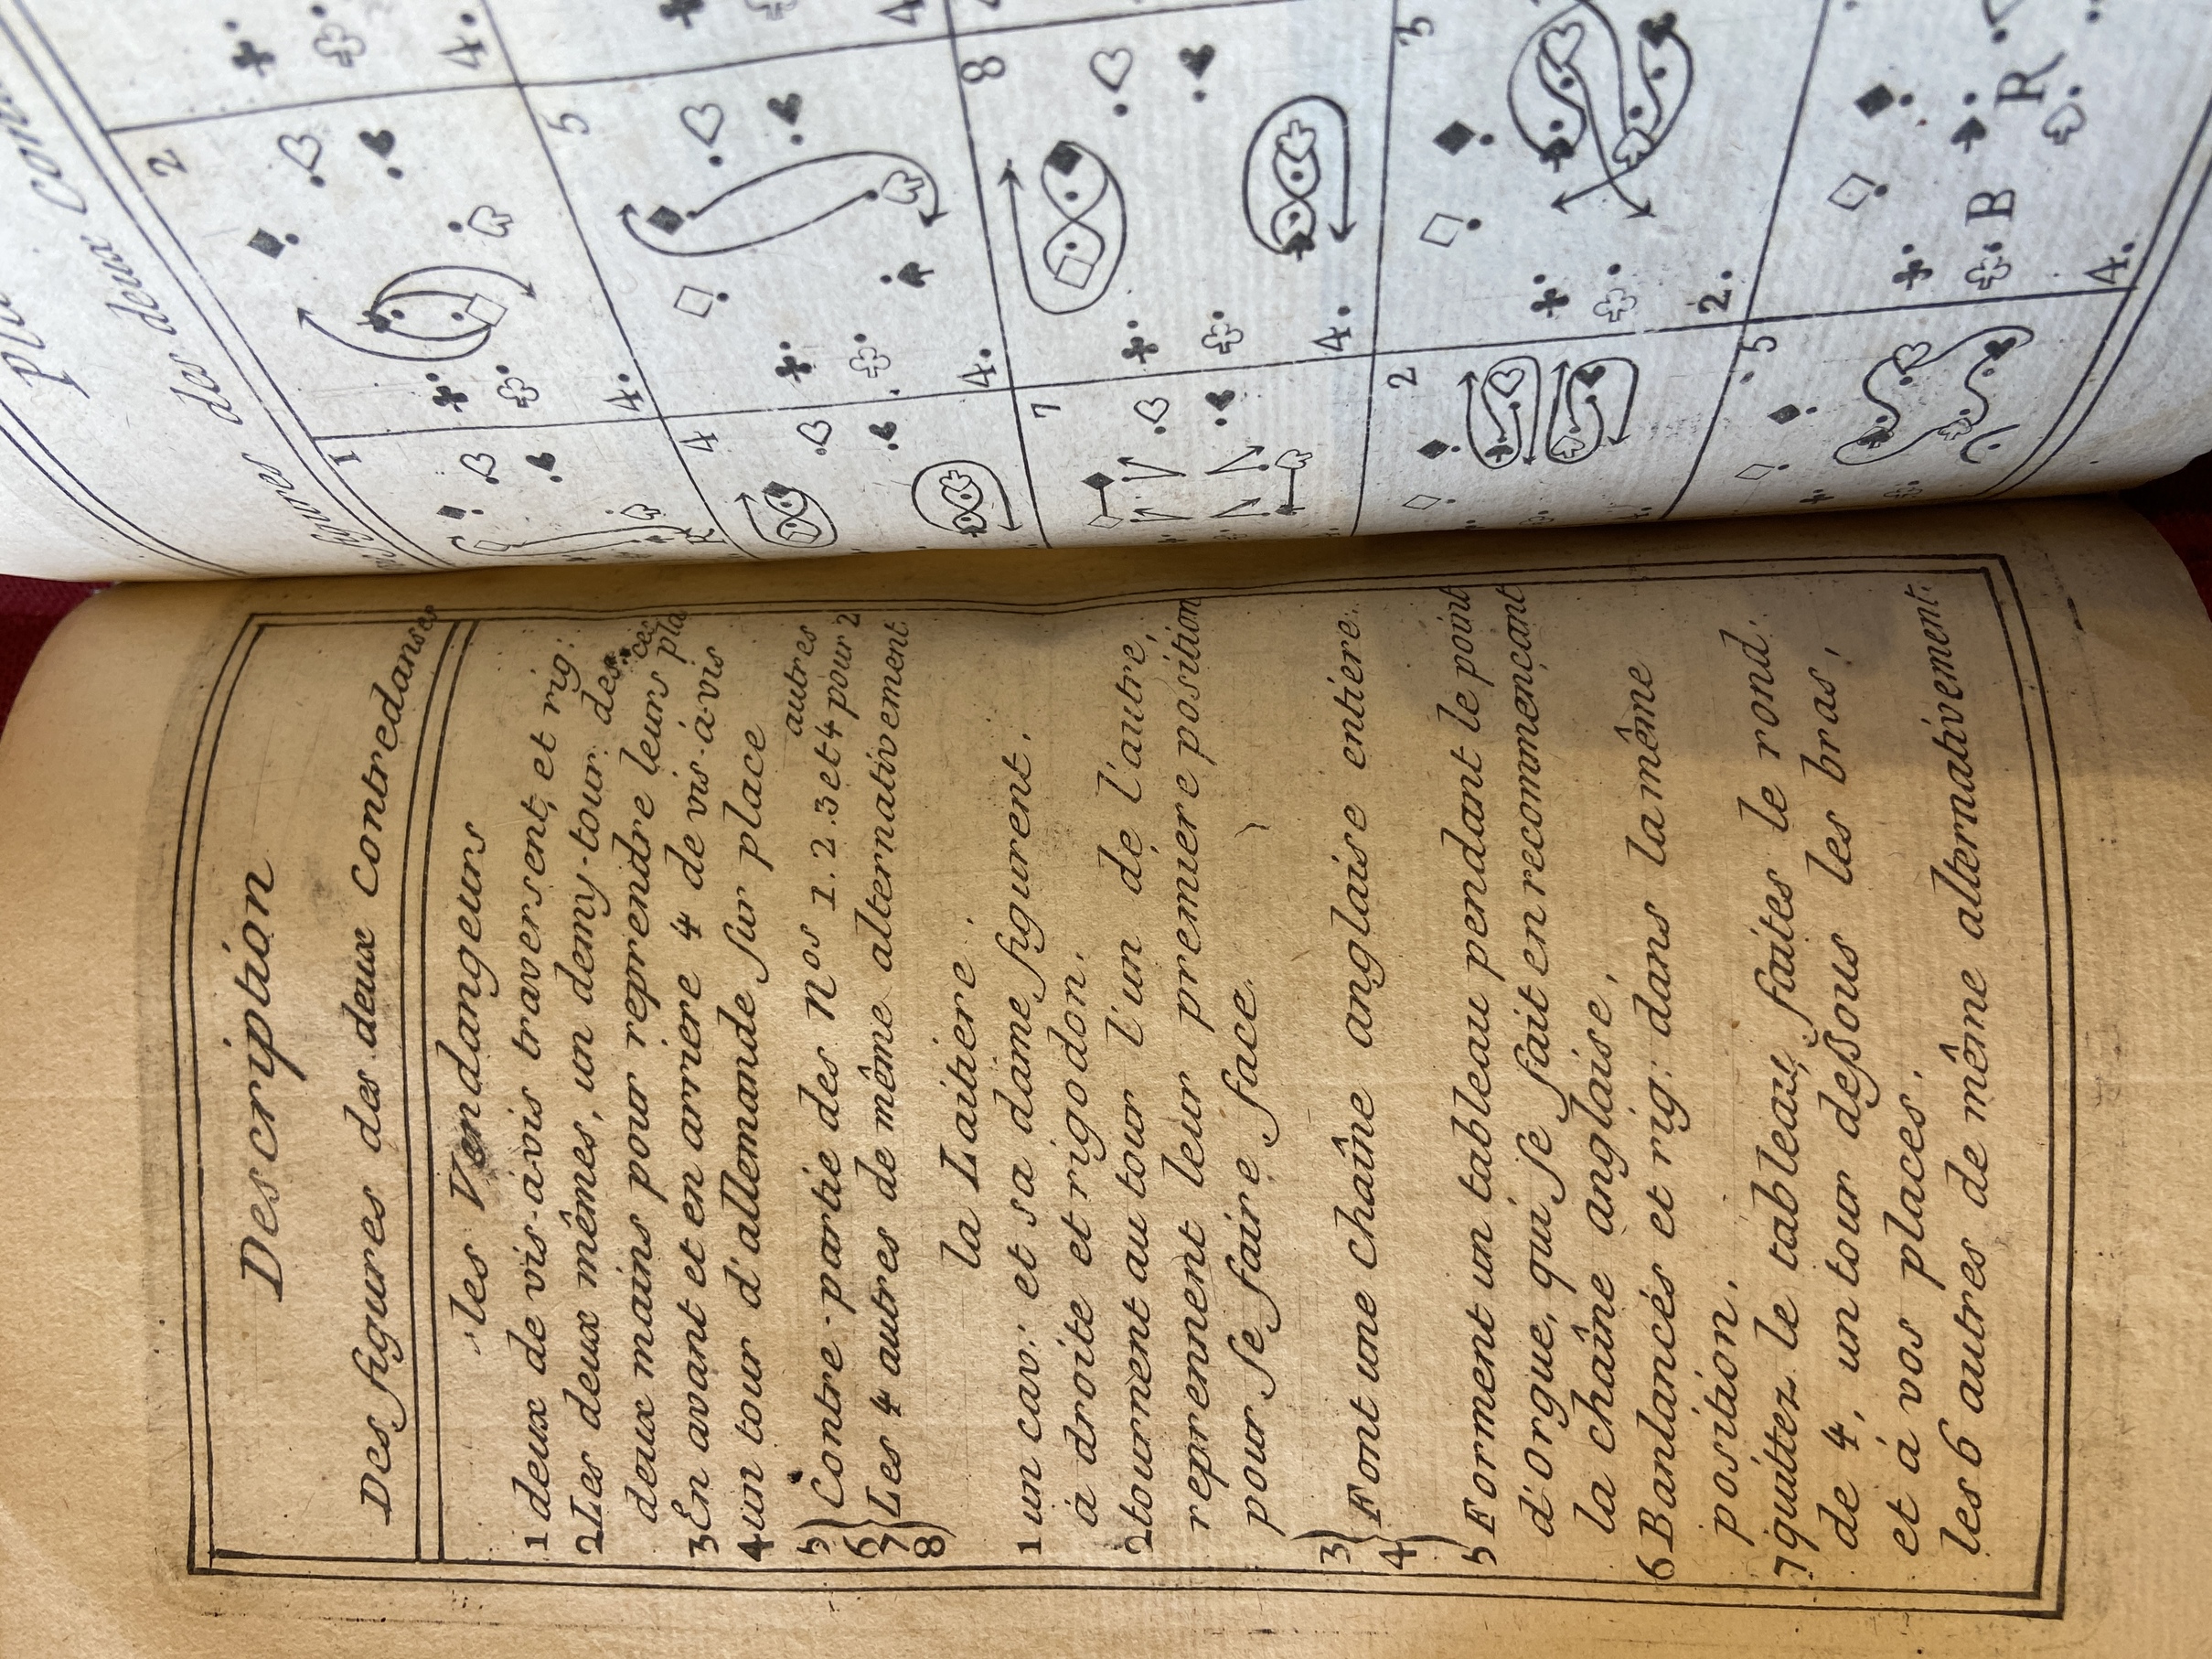 Description
Des figures des deux contredanses
les Vendangeurs
1 deux de vis-à-vis traversent, et rig:
2 Les deux mêmes, un demy-tour des
deux mains pour reprendre leurs places
3 En avant et en arriere 4 de vis-à-vis
4 un tour d'allemande sur place
5 } Contre-partie des Nos 1. 2. 3 et 4 pour 2 autres
6
7 } Les 4 autres de même alternativement
8
la Laitiere.
1 un cav: et sa dame figurent.
à droite et rigodon.
2 tournent au tour l'un de l'autre,
reprennent leur premiere position
pour se faire face.
3 } Font une chaîne anglaise entiere.
4
5 Forment un tableau pendant le point
d'orgue, qui se fait en recommençant
la chaîne anglaise,
6 Banlancés et rig: dans la même
position.
7 quitez le tableau, faites le rond.
de 4, un tour deßous les bras,
et à vos places.
les 6 autres de même alternativement.
des deux
1
2
4.
4.
4
5
4.
4
7
8
4.
2
3
2.
5
B
R
4.